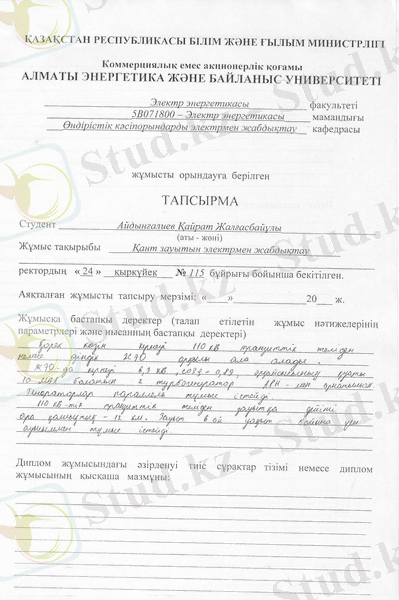 ҚАЗАҚСТАН РЕСПУБЛИКАСЫ БІЛІМ ЖӘНЕ ҒЫЛЫМ МИНИСТРЛІГІ
Коммерциялық емес акционерлік қоғамы
АЛМАТЫ ЭНЕРГЕТИКА ЖӘНЕ БАЙЛАНЫС УНИВЕРСИТЕТІ
Электр энергетикасы факультеті
5В071800 – Электр энергетикасы мамандығы
Өндірістік кәсіпорындарды электрмен жабдықтау кафедрасы
жұмысты орындауға берілген
ТАПСЫРМА
Студент Айдынғалиев Қайрат Жалғасбайұлы
(аты - жөні)
Жұмыс тақырыбы Қант зауытын электрмен жабдықтау
ректордың «24» қыркүйек № 115 бұйрығы бойынша бекітілген.
Аяқталған жұмысты тапсыру мерзімі: «___» ______ 20___ ж.
Жұмысқа бастапқы деректер (талап етілетін жұмыс нәтижелерінің
параметрлері және нысанның бастапқы деректері)
Қорек көзін кернеуі 110 кВ транзиттік
ЖЭО арқылы ала алады.
ЖЭО-да кернеуі 6,3 кВ қуаты
10 МВт болатын 2 турбогенератор
Генераторлар параллель жұмыс істейді.
110 кВ-тік транзиттік зауытқа дейінгі
ара қашықтық - 12 км. Зауыт
жұмыс істейді.
Диплом жұмысындағы әзірленуі тиіс сұрақтар тізімі немесе диплом
жұмысының қысқаша мазмұны:
Stud.kz - Stud.kz